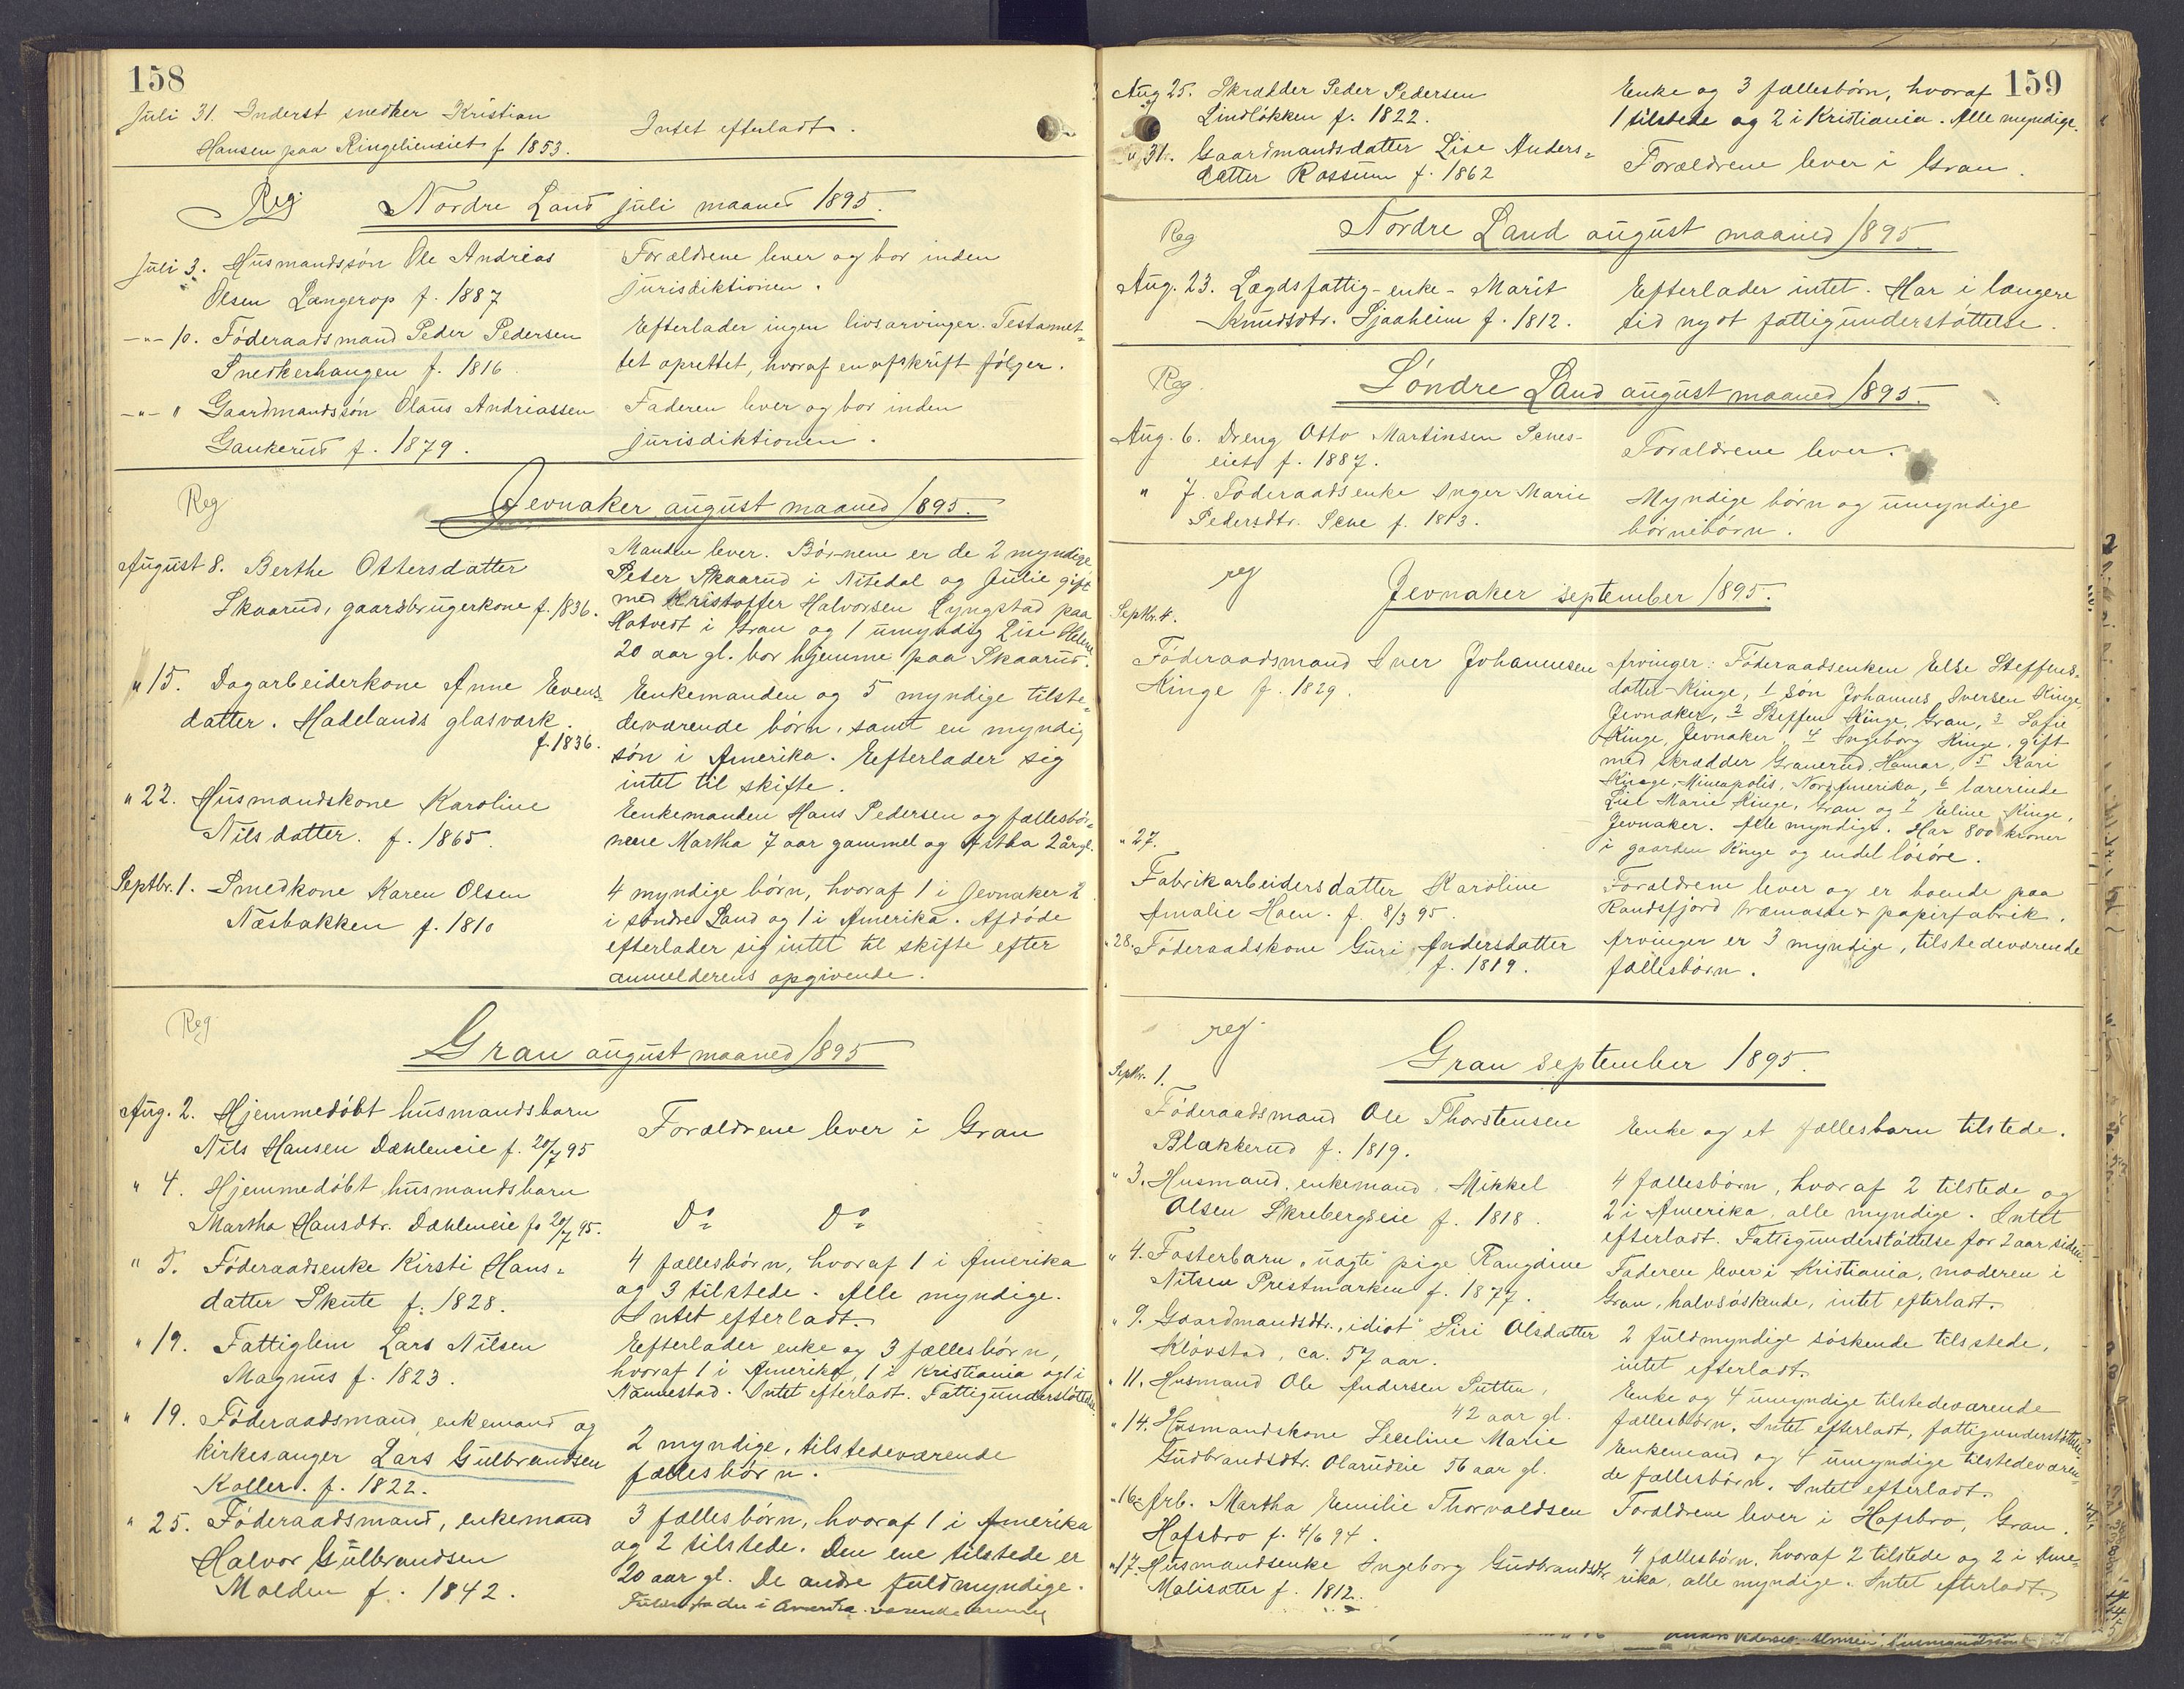 158
Juli 31. Inderst snedker Kristian
Hansen paa Ringelieneiet f. 1853.
Intet efterladt.
Reg
Nordre Land juli maaned 1895.
Juli 3. Husmandssön Ole Andreas
Olsen Længerop f. 1887
Forældrene lever og bor inden
jurisdiktionen.
-"- 10. Föderaadsmand Peder Pedersen
Snedkerhaugen f. 1816
Efterlader ingen livsarvinger. Testamet-
tet oprettet, hvoraf en afskrift fölger.
-"- " Gaardmandssön Olaus Andriassen
Gaukerud f. 1879.
Faderen lever og bor inden
jurisdiktionen.
Reg
Jevnaker august maaned 1895.
August 8. Berthe Ottersdatter
Skaarud, gaardbrugerkone f. 1836.
Manden lever. Börnene er de 2 myndige
Peter Skaarud i Nitedal og Julie gift
med Kristoffer Halvorsen Lyngstad paa
Hotvedt i Gran og 1 umyndig Lise Helene
20 aar gl. bor hjemme paa Skaarud.
" 15. Dagarbeiderkone Anne Evens-
datter. Hadelands glasværk.
f. 1836.
Enkemanden og 5 myndige tilste-
deværende börn, samt en myndig
sön i Amerika. Efterlader sig
intet til skifte.
" 22. Husmandskone Karoline
Nilsdatter. f. 1865.
Enkemanden Hans Pedersen og fællesbör-
nene Martha 7 aar gammel og Astha 2 år gl.
Septbr. 1. Smedkone Karen Olsen
Næsbakken f. 1810
4 myndige börn, hvoraf 1 i Jevnaker 2
i söndre Land og 1 i Amerika. Afdöde
efterlader sig intet til skifte efter
anmelderens opgivende.
Reg
Gran august maaned 1895
Aug. 2. Hjemmedöbt husmandsbarn
Nils Hansen Dæhleneie f. 20/7 95
Forældrene lever i Gran
" 4. Hjemmedöbt husmandsbarn
Martha Hansdtr. Dæhleneie f. 20/7 95.
Do Do
" 5. Föderaadsenke Kirsti Hans-
datter Skute f. 1828.
4 fællesbörn, hvoraf 1 i Amerika
og 3 tilstede. Alle myndige.
Intet efterladt.
" 19. Fattiglem Lars Nilsen
Magnus f. 1823.
Efterlader enke og 3 fællesbörn,
hvoraf 1 i Amerika, 1 i Kristiania og 1 i
Nannestad. Intet efterladt. Fattigunderstöttelse.
" 19. Föderaadsmand, enkemand og
kirkesanger Lars Gulbrandsen
Koller. f. 1822.
2 myndige, tilstedeværende
fællesbörn.
" 25. Föderaadsmand, enkemand
Halvor Gulbrandsen
Molden f. 1842.
3 fællesbörn, hvoraf 1 i Amerika
og 2 tilstede. Den ene tilstede er
20 aar gl. De andre fuldmyndige.
i Amerika værende
159
Aug 25. Skrædder Peder Pedersen
Lindlökken f. 1822.
Enke og 3 fællesbörn, hvoraf
1 tilstede og 2 i Kristiania. Alle myndige.
" 31. Gaardmandsdatter Lise Anders-
datter Rossum f. 1862
Forældrene lever i Gran.
Reg
Nordre Land august maaned 1895
Aug. 23. Lægdsfattig-enke- Marit
Knudsdtr. Sjaaheim f. 1812.
Efterlader intet. Har i længere
tid nydt fattigunderstöttelse.
Reg.
Söndre Land august maaned 1895.
Aug. 6. Dreng Otto Martinsen Scenes-
eiet f. 1887.
Forældrene lever.
" 7. Föderaadsenke Inger Marie
Pedersdtr. f. 1813.
Myndige börn og umyndige
börnebörn.
reg
Jevnaker september 1895.
Septbr. 4.
Föderaadsmand Iver Johannesen
Kinge f. 1829.
Arvinger: Föderaadsenken Else Steffens-
datter Kinge, 1 sön Johannes Iversen Kinge
Jevnaker, 2 Steffen Kinge, Gran, 3 Sofie
Kinge, Jevnaker 4 Ingeborg Kinge, gift
med skrædder Granerud, Hamar, 5 Kari
Kinge, Mineapolis, Nordamerika, 6 lærerinde
Lise Marie Kinge, Gran og 7 Eline Kinge,
Jevnaker. Alle myndige. Har 800 kroner
i gaarden Kinge og endel lösöre.
" 27.
Fabrikarbeidersdatter Karoline
Amalie Hoen. f. 8/3 95.
Forældrene lever og er boende paa
Randsfjord træmasse & papirfabrik.
" 28. Föderaadskone Guri Andersdatter
f. 1819.
Arvinger er 3 myndige, tilstedeværende
fællesbörn.
reg.
Gran september 1895.
Septbr. 1.
Föderaadsmand Ole Thorstensen
Blækkerud f. 1819.
Enke og et fællesbarn tilstede.
" 3. Husmand, enkemand, Mikkel
Olsen Skrebergseie f. 1818.
4 fællesbörn, hvoraf 2 tilstede og
2 i Amerika, alle myndige. Intet
efterladt. Fattigunderstöttelse for 2 aar siden.
" 4. Fosterbarn, uægte pige Rangdine
Nilsen Prestmarken f. 1877.
Faderen lever i Kristiania, moderen i
Gran, halvsöskende, intet efterladt.
" 9. Gaardmandsdtr. "idiot" Siri Olsdatter
Klövstad, ca. 57 aar.
2 fuldmyndige söskende tilstede,
intet efterladt.
" 11. Husmand Ole Andersen Putten,
42 aar gl.
Enke og 4 umyndige tilstedeværende
fællesbörn. Intet efterladt, fattigunderstöttelse.
" 14. Husmandskone Seceline Marie
Gudbrandsdtr. Olarudeie 56 aar gl.
Enkemand og 4 umyndige tilstedeværen-
de fællesbörn. Intet efterladt.
" 16. Arb. Martha Emilie Thorvaldsen
Hofsbro f. 4/6 94.
Forældrene lever i Hofsbro, Gran.
" 17. Husmandsenke Ingeborg Gudbrandsdtr.
Malisæter f. 1812.
4 fællesbörn, hvoraf 2 tilstede og 2 i Ame-
rika, alle myndige. Intet efterladt.